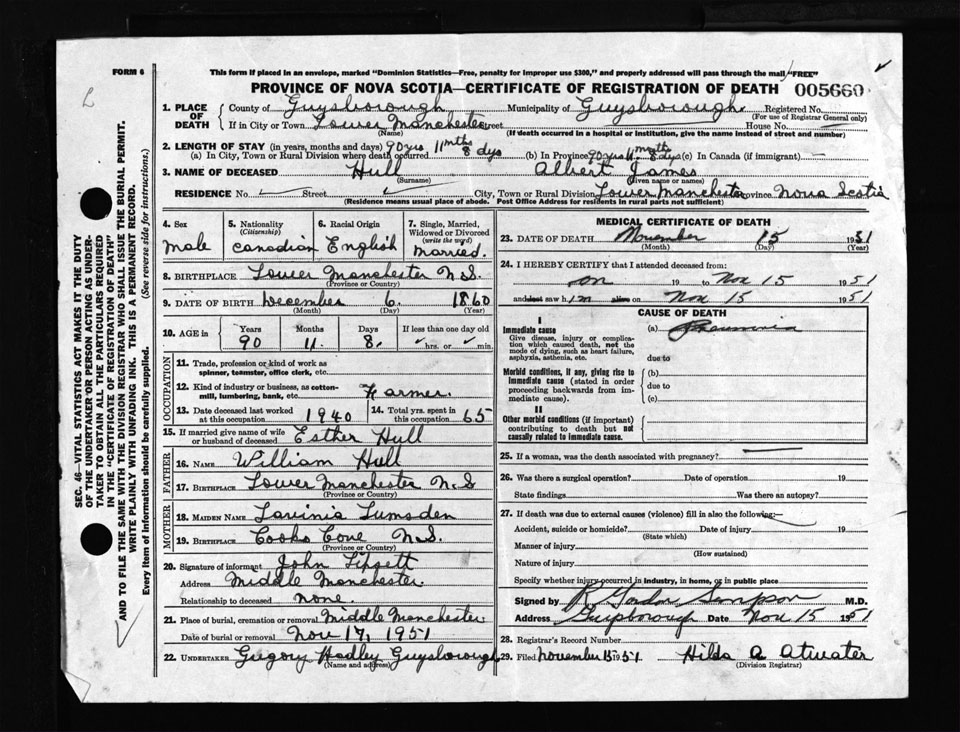 FORM 6
This form if placed in an envelope, marked "Dominion Statistics—Free, penalty for improper use $300," and properly addressed will pass through the mail "FREE"
PROVINCE OF NOVA SCOTIA—CERTIFICATE OF REGISTRATION OF DEATH 005660
1. PLACE OF DEATH
County of Guysborough Municipality of Guysborough Registered No.
(For use of Registrar General only)
If in City or Town Lower Manchester Street House No.
(Name) (If death occurred in a hospital or institution, give the name instead of street and number)
2. LENGTH OF STAY (in years, months and days) 90 yrs 11 mths 8 dys
(a) In City, Town or Rural Division where death occurred (b) In Province 90 yrs 11 mths 8 dys (c) In Canada (if immigrant)
3. NAME OF DECEASED Hull Albert James
(Surname) (Given name or names)
RESIDENCE No. Street City, Town or Rural Division Lower Manchester Province Nova Scotia
(Residence means usual place of abode. Post Office Address for residents in rural parts not sufficient)
4. Sex
male
5. Nationality
(Citizenship)
Canadian
6. Racial Origin
English
7. Single, Married, Widowed or Divorced
(write the word)
Married.
8. BIRTHPLACE Lower Manchester N.S.
(Province or Country)
9. DATE OF BIRTH December 6. 1860
(Month) (Day) (Year)
10. AGE in
Years Months Days If less than one day old
90 11. 8. hrs. or min.
OCCUPATION
11. Trade, profession or kind of work as spinner, teamster, office clerk, etc.
12. Kind of industry or business, as cotton-mill, lumbering, bank, etc. Farmer.
13. Date deceased last worked at this occupation 1940
14. Total yrs. spent in this occupation 65
15. If married give name of wife or husband of deceased Esther Hull
FATHER
16. NAME William Hull
17. BIRTHPLACE Lower Manchester N.S
(Province or Country)
MOTHER
18. MAIDEN NAME Lavinia Lumsden
19. BIRTHPLACE Cooks Cove N.S.
(Province or Country)
20. Signature of informant John Lipsett
Address Middle Manchester.
Relationship to deceased none.
21. Place of burial, cremation or removal Middle Manchester
Date of burial or removal Nov 17, 1951
22. UNDERTAKER Gregory Hadley Guysborough
(Name and address)
MEDICAL CERTIFICATE OF DEATH
23. DATE OF DEATH November 15 1951
(Month) (Day) (Year)
24. I HEREBY CERTIFY that I attended deceased from:
on 19 to Nov 15 1951
and last saw h im alive on Nov 15 1951
CAUSE OF DEATH
I
Immediate cause (a) Pneumonia
Give disease, injury or complication which caused death, not the mode of dying, such as heart failure, asphyxia, asthenia, etc.
due to
Morbid conditions, if any, giving rise to immediate cause (stated in order proceeding backwards from immediate cause).
(b)
due to
(c)
II
Other morbid conditions (if important) contributing to death but not causally related to immediate cause.
25. If a woman, was the death associated with pregnancy?
26. Was there a surgical operation? Date of operation 19
State findings Was there an autopsy?
27. If death was due to external causes (violence) fill in also the following:—
Accident, suicide or homicide? Date of injury 19
(State which)
Manner of injury
(How sustained)
Nature of injury
Specify whether injury occurred in industry, in home, or in public place
Signed by R Gordon Simpson M.D.
Address Guysborough Date Nov 15 1951
28. Registrar's Record Number
29. Filed November 15 1951 Hilda A Atwater
(Division Registrar)
SEC. 46—VITAL STATISTICS ACT MAKES IT THE DUTY
OF THE UNDERTAKER OR PERSON ACTING AS UNDER-
TAKER TO OBTAIN ALL THE PARTICULARS REQUIRED
IN THE "CERTIFICATE OF REGISTRATION OF DEATH"
AND TO FILE THE SAME WITH THE DIVISION REGISTRAR WHO SHALL ISSUE THE BURIAL PERMIT.
WRITE PLAINLY WITH UNFADING INK. THIS IS A PERMANENT RECORD.
Every item of information should be carefully supplied. (See reverse side for instructions.)